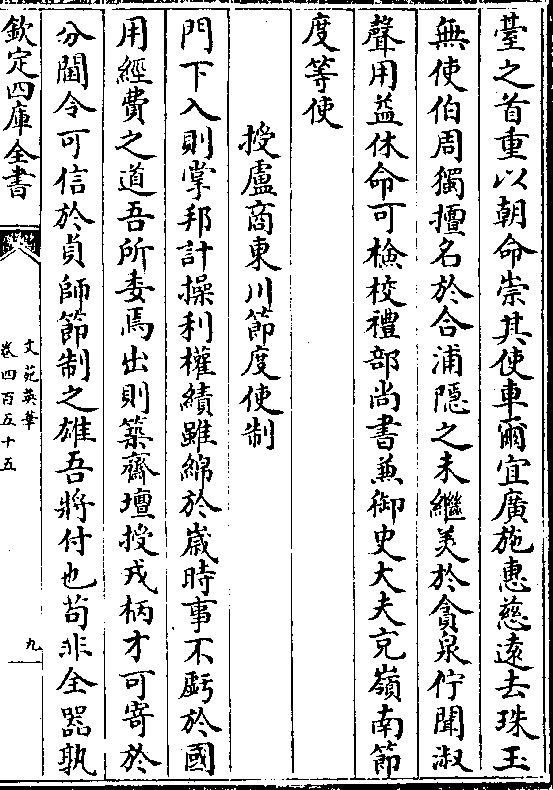 臺之首重以朝命崇其使車爾宜廣施惠慈遠去珠玉
無使伯周獨擅名於合浦隱之未繼美於貪泉佇聞淑
聲用益休命可檢校禮部尚書兼御史大夫充嶺南節
度等使
授盧商東川節度使制
門下入則掌邦計操利權績雖綿於歲時事不虧於國
用經費之道吾所委焉出則築齋壇授戎柄才可寄於
分閫令可信於貞師節制之雄吾將付也苟非全器孰
欽定四庫全書
文苑英華
卷四百五十五
九